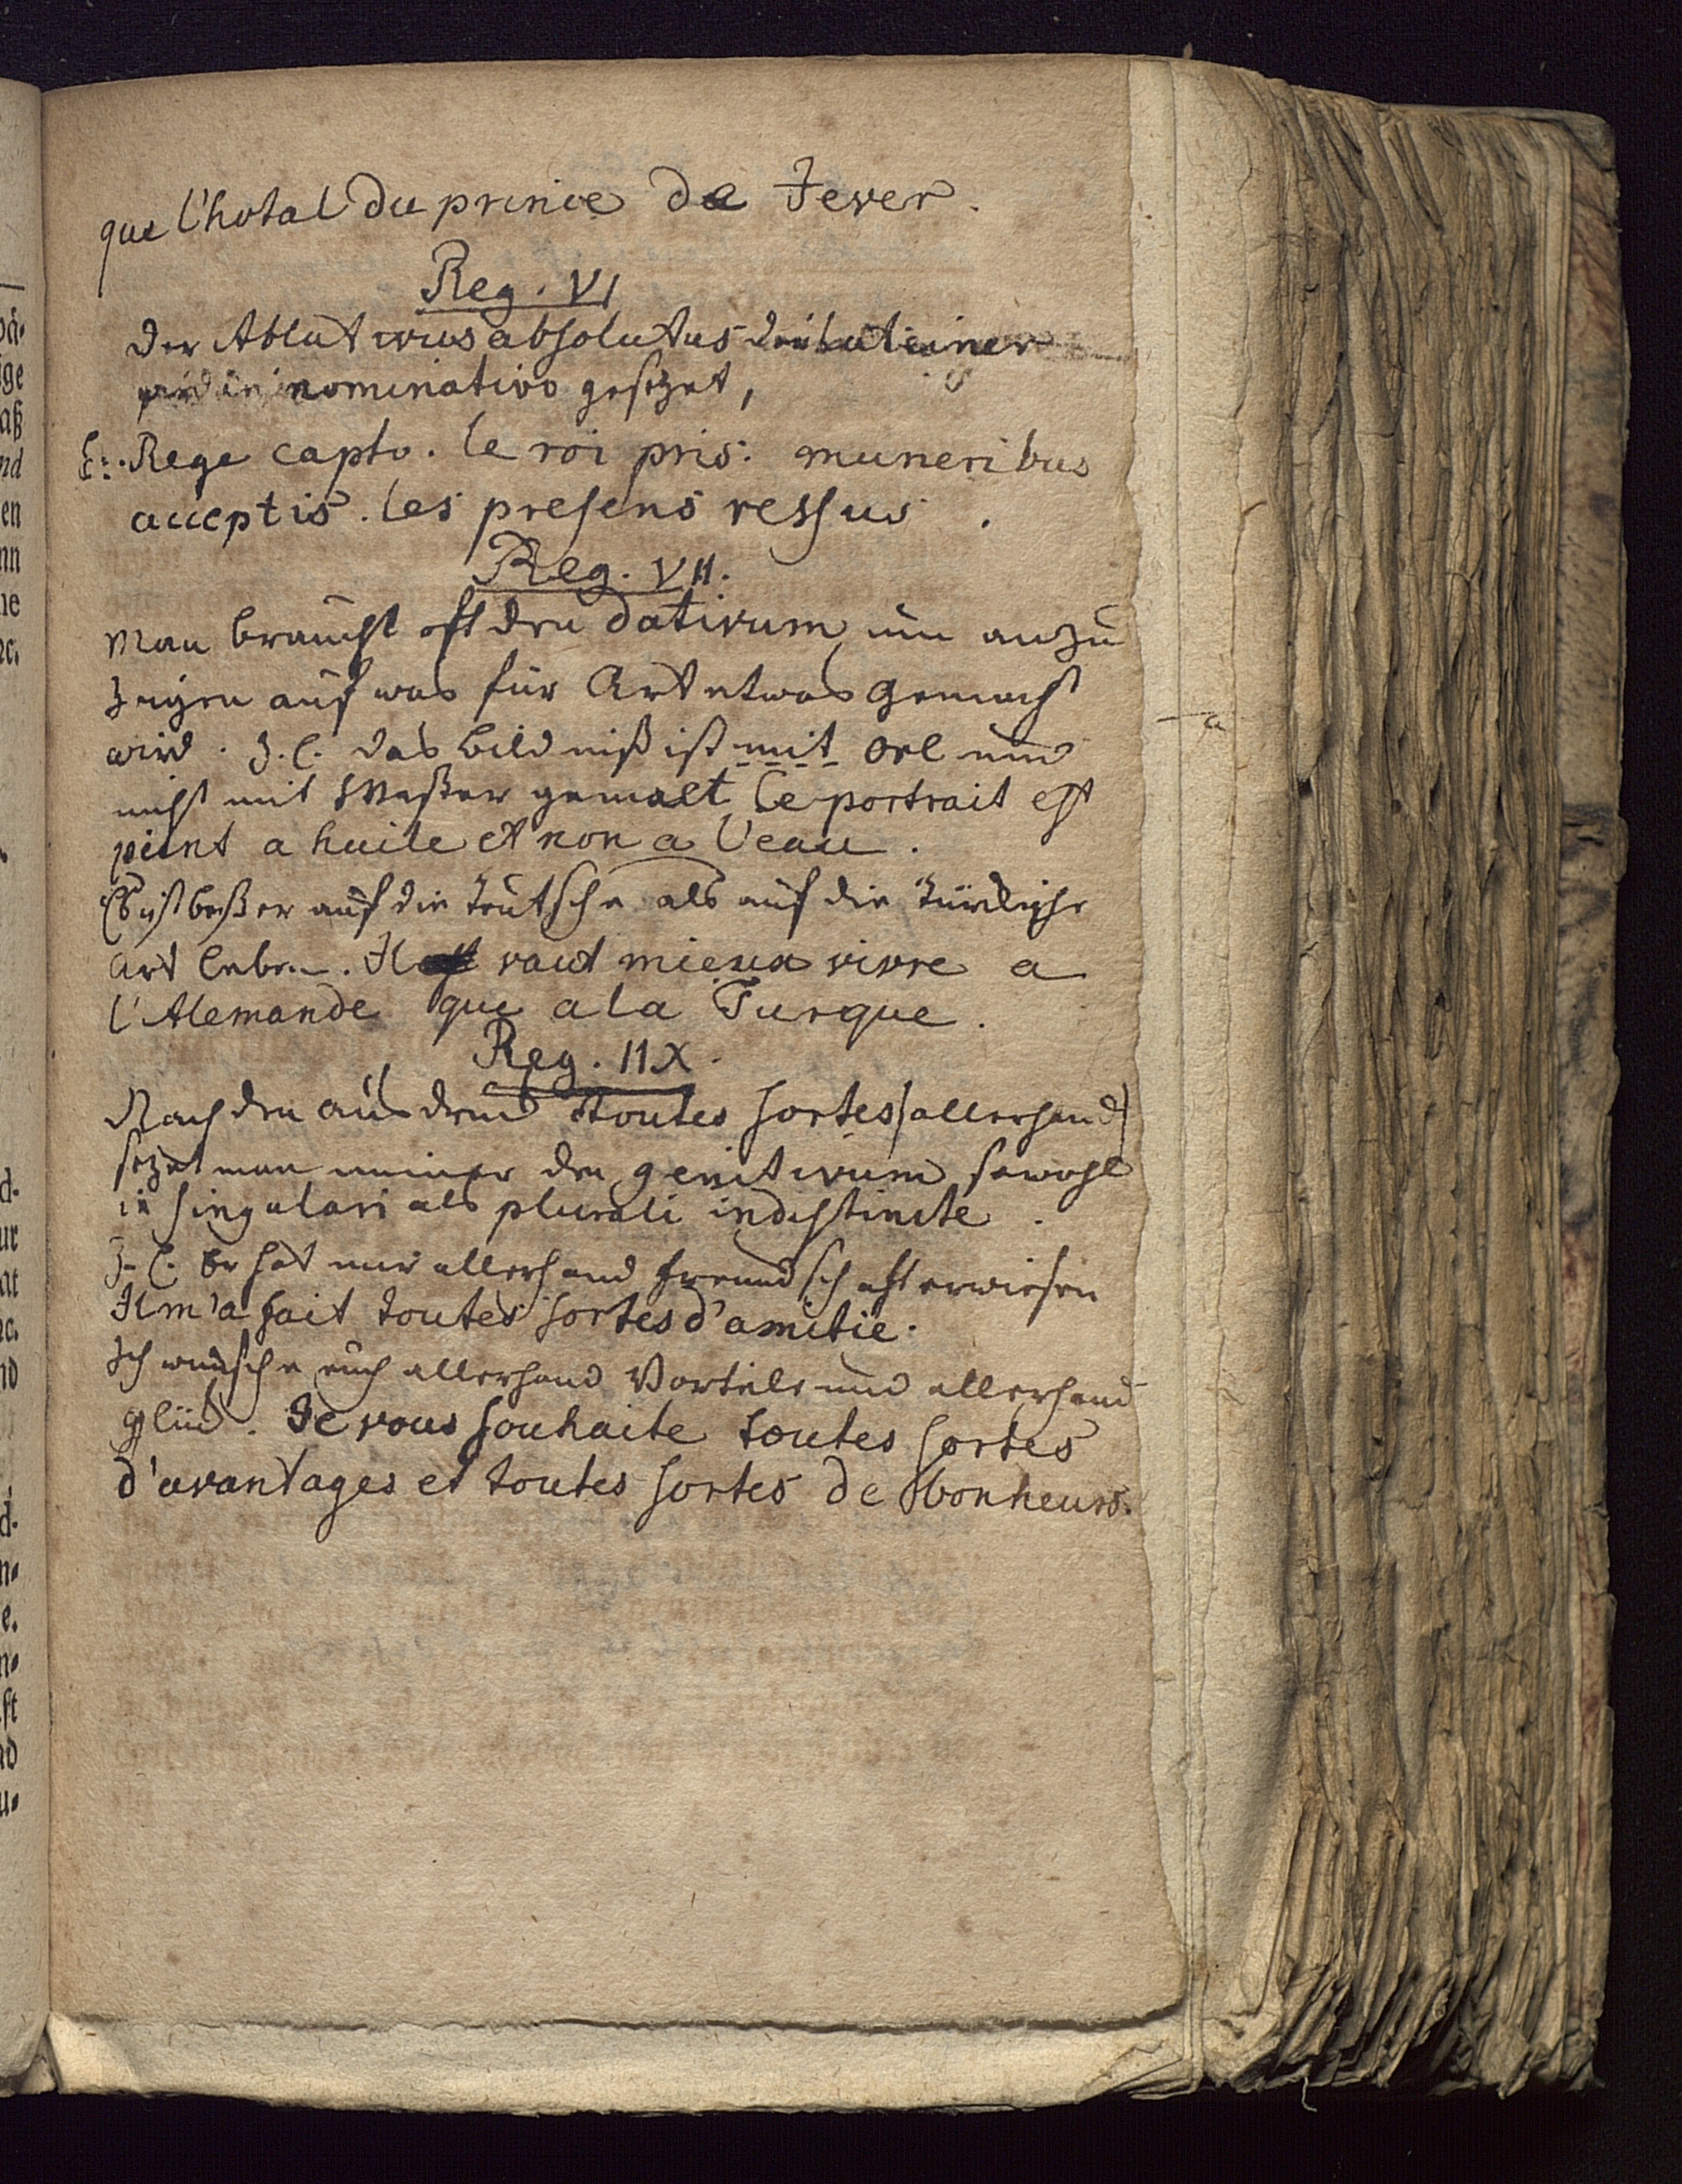 que l'hotal du prince de Jever.
Reg. VI
Der Ablativus absolutus der lateiner
wird in nominativo gesezet,
E: Rege capto. le roi pris. muneribus
acceptis. les presens ressus.
Reg. VII.
Man braucht oft den dativum, um anzu
zeigen auf was für Art etwas gemacht
wird. Z. E. das bildniß ist mit Oel und
nicht mit Waßer gemalt, le portrait est
peint a huile et non a l'eau.
Es ist beßer auf die teutsche als auf die türckische
Art leben. Il vaut mieux vivre a
l'Alemande que a la Turque.
Reg. IIX.
Nach den ausdruck toutes sortes (allerhand)
sezet man immer den genitivum sowohl
in singulari als plurali indistincte.
Z. E. Er hat mir allerhand freundschaft erwiesen
Il m'a fait toutes sortes d'amitie.
Ich wünsche euch allerhand Vorteile und allerhand
glück. Je vous souhaite toutes sortes
d'avantages et toutes sortes de bonheurs.
ge
aß
nd
en
nn
ne
d.
ur
nt
nd
d.
n.
e.
n.
st
nd
u.